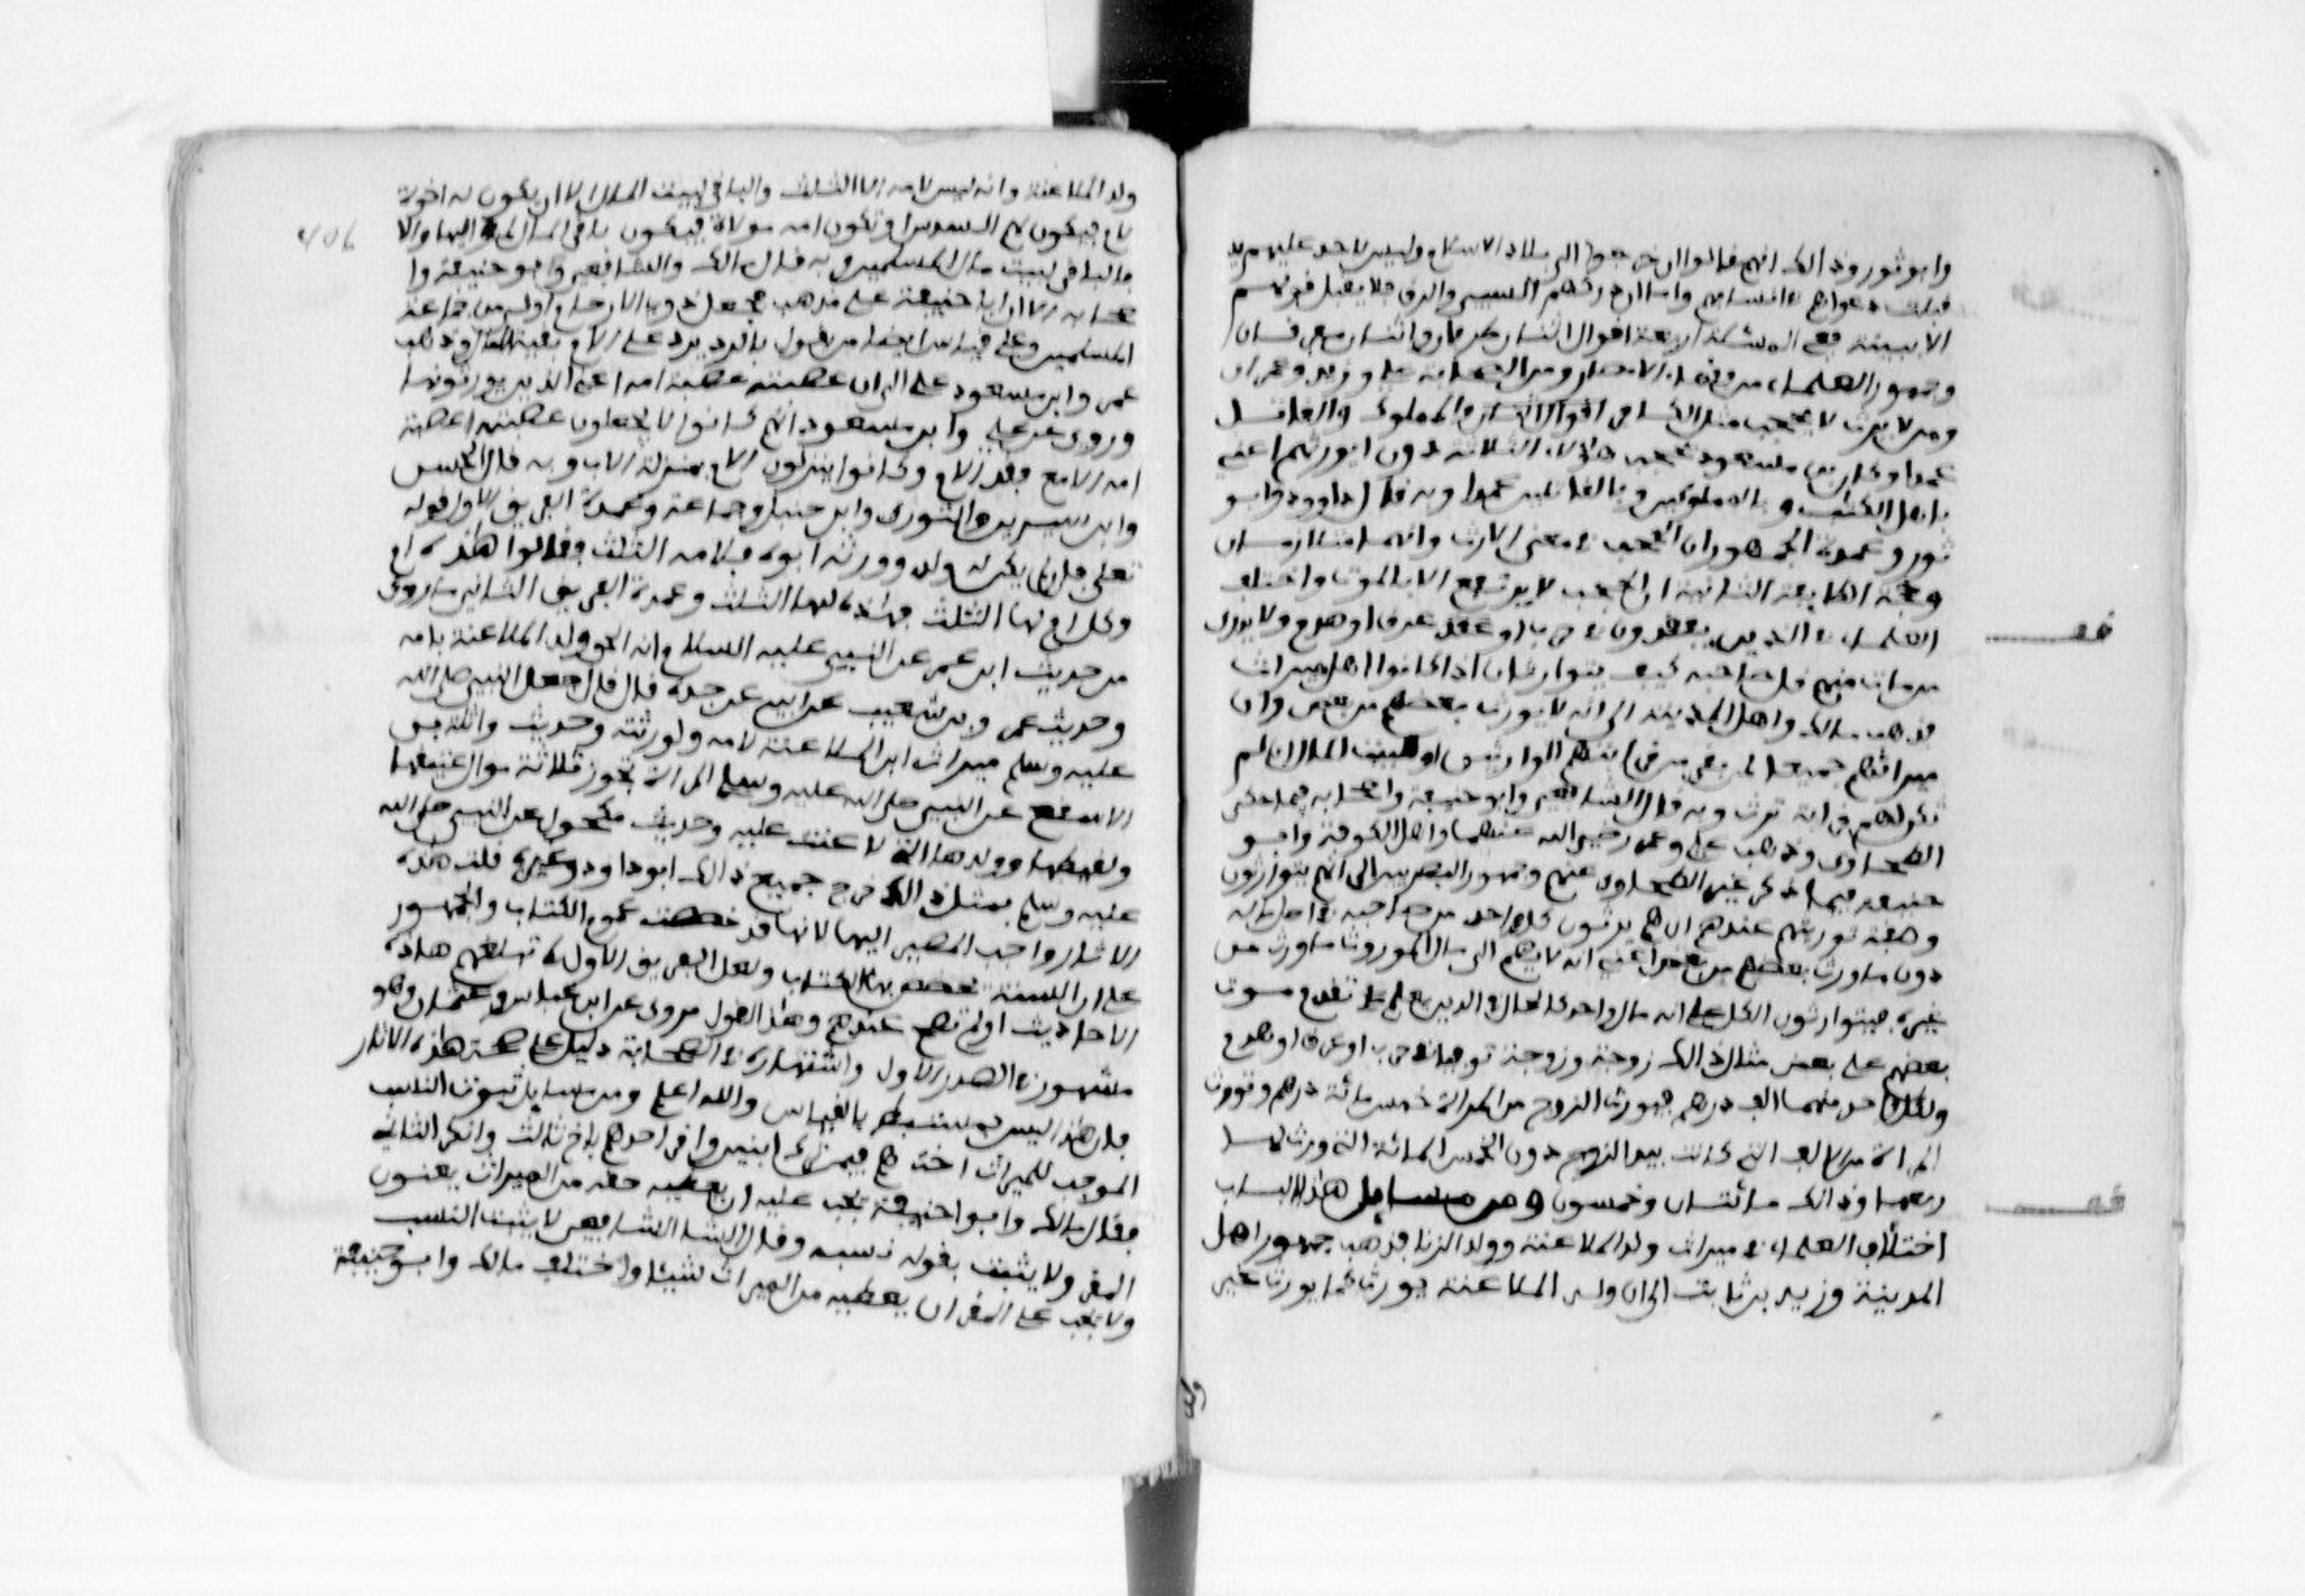 وابو ثور وذالك انهم قالوا ان خرجوا الى بلاد الاسلام وليس لاحد عليهم يد
قبلت دعواهم في انسابهم واما ان ادركهم السبي والرق فلا يقبل قولهم
الا ببينة ففي المسئلة اربعة اقوال اثنان طرفان واثنان مفرقان
وجمهور العلماء من فقهاء الامصار ومن الصحابة علي وزيد وعمر ان
ومن لا يرث لا يحجب مثل الكافر والمملوك والقاتل
عمدا وكان ابن مسعود يحجب هاؤلاء الثلاثة دون ان يورثهم اعني
باهل الكتاب وبالمملوكين وبالقاتلين عمدا وبه قال داوود وابو
ثور وعمدة الجمهور ان الحجب في معنى الارث وانهما متلازمان
وحجة الطايفة الثانية ان الحجب لا يرتفع الا بالموت واختلف
العلماء في الذين يفقدون في حرب او غرق او هدم ولا يدرى
من مات منهم قبل صاحبه كيف يتوارثون اذا كانوا اهل ميراث
فذهب مالك واهل المدينة الى انه لا يورث بعضهم من بعض وان
ميراثهم جميعا لمن بقي من قرابتهم الوارثين او لبيت المال ان لم
تكن لهم قرابة ترث وبه قال الشافعي وابو حنيفة واصحابه فيما حكى
الطحاوي وذهب علي وعمر رضي الله عنهما واهل الكوفة وابو
حنيفة فيما ذكر غير الطحاوي عنهم وجمهور البصريين الى انهم يتوارثون
وصفة توريثهم عندهم انهم يرثون كل واحد من صاحبه في اصل ماله
دون ما ورث بعضهم من بعض اعني انه لا يضم الى مال الموروث ما ورث من
غيره فيتوارثون الكل على انه مال واحد كالحال في الذين يعلم تقدم موت
بعضهم على بعض مثال ذالك زوج وزوجة توفيا في حرب او غرق او هدم
ولكل واحد منهما الف درهم فيورث الزوج من المراة خمس مائة درهم وتورث
المراة من الالف التي كانت بيد الزوج دون الخمس المائة التي ورث منها
ربعها وذالك مائتان وخمسون ومن مسايل هذا الباب
اختلاف العلماء في ميراث ولد الملاعنة وولد الزنا فذهب جمهور اهل
المدينة وزيد بن ثابت الى ان ولد الملاعنة يورث كما يورث غير
ولد الملاعنة وانه ليس لامه الا الثلث والباقي لبيت المال الا ان يكون له اخوة
لام فيكون لهم السدس او تكون امه مولاة فيكون باقي المال لمواليها والا
فالباقي لبيت مال المسلمين وبه قال مالك والشافعي وابو حنيفة وا
صحابه الا ان ابا حنيفة على مذهبه يجعل ذوي الارحام اولى من جماعة
المسلمين وعلى قياس ايضا من يقول بالرد يرد على الام بقية المال وذهب
عمر وابن مسعود على الى ان عصبته عصبة امه اعني الذين يورثونها
وروي عن علي وابن مسعود انهم كانوا لا يجعلون عصبته عصبة
امه الا مع فقد الام وكانوا ينزلون الام بمنزلة الاب وبه قال الحسن
وابن سيرين والثوري وابن حنبل وجماعة وعمدة الفريق الاول قوله
تعلى فان لم يكن له ولد وورثه ابواه فلامه الثلث وقالوا هذه ام
وكل ام لها الثلث فهاذه لها الثلث وعمدة الفريق الثاني ما روي
من حديث ابن عمر عن النبي عليه السلام انه الحق ولد الملاعنة بامه
وحديث عمرو بن شعيب عن ابيه عن جده قال قال جعل النبي صلى الله
عليه وسلم ميراث ابن الملاعنة لامه ولورثته وحديث واثلة بن
الاسقع عن النبي صلى الله عليه وسلم المراة تحوز ثلاثة موال عتيقها
ولقيطها وولدها الذي لاعنت عليه وحديث مكحول عن النبي صلى الله
عليه وسلم بمثل ذالك خرج جميع ذالك ابو داود وغيره قلت هذه
الاثار واجب المصير اليها لانها قد خصصت عموم الكتاب والجمهور
على ان السنة يخصص بها الكتاب ولعل الفريق الاول لم تبلغهم هاذه
الاحاديث او لم تصح عندهم وهذا القول مروي عن ابن عباس وعثمان وهو
مشهور في الصدر الاول واشتهاره في الصحابة دليل على صحة هذه الاثار
فان هذا ليس يستنبط بالقياس والله اعلم ومن مسايل ثبوت النسب
الموجب للميراث اختلافهم فيمن ترك ابنين واقر احدهم باخ ثالث وانكر الثاني
فقال مالك وابو حنيفة يجب عليه ان يعطيه حقه من الميراث يعنون
المقر ولا يثبت بقوله نسبه وقال الشافعي لا يثبت النسب
ولا يجب على المقر ان يعطيه من الميراث شيئا واختلف مالك وابو حنيفة